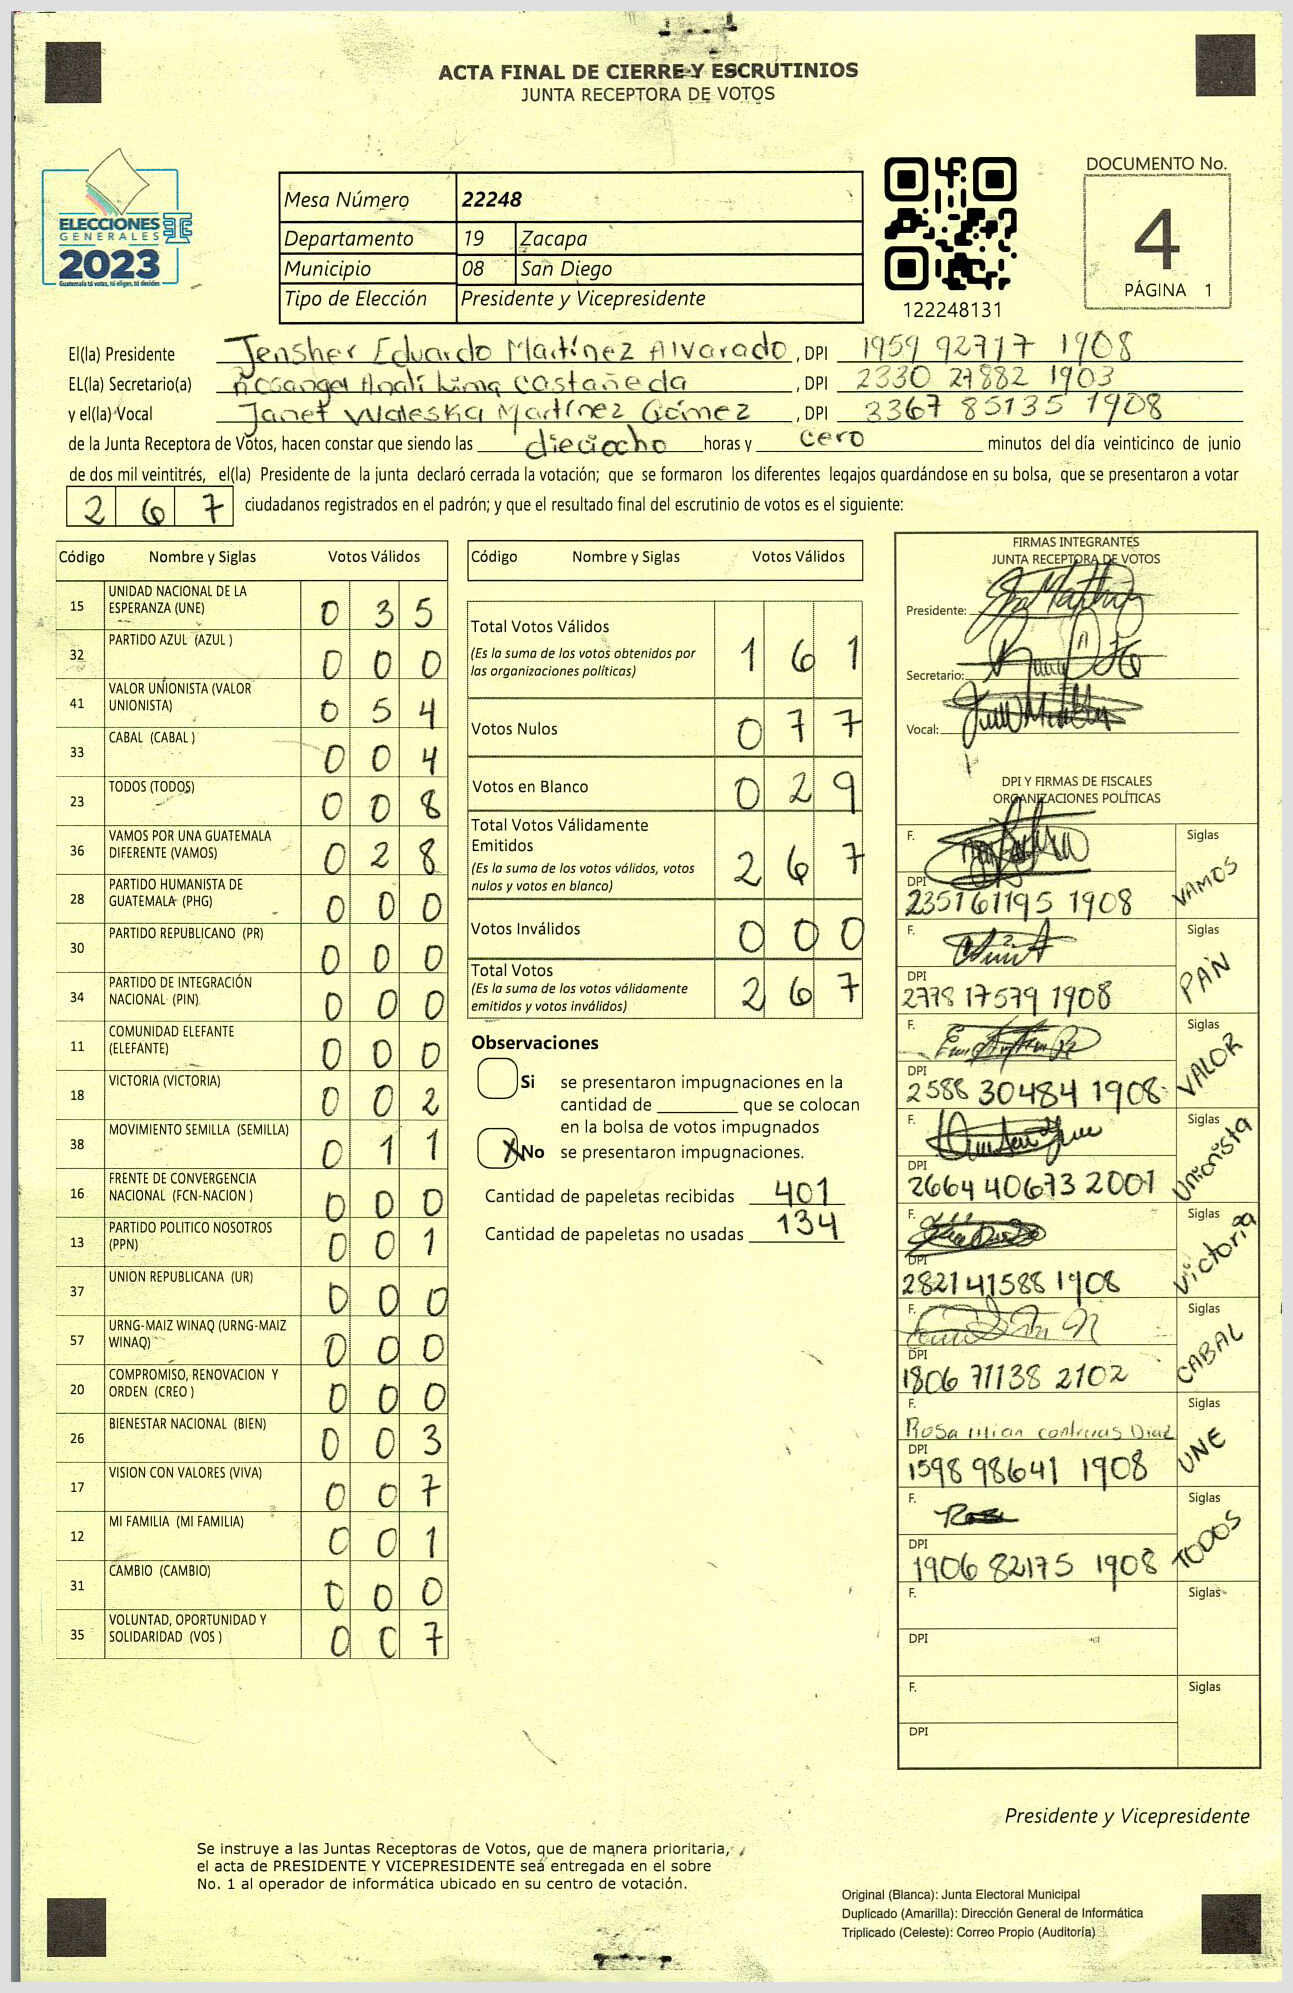 ACTA FINAL DE CIERRE Y ESCRUTINIOS
JUNTA RECEPTORA DE VOTOS
ELECCIONES
GENERALES
2023
Guatemala tú votas, tú eliges, tú decides
Mesa Número 22248
Departamento 19 Zacapa
Municipio 08 San Diego
Tipo de Elección Presidente y Vicepresidente
122248131
DOCUMENTO No.
4
PÁGINA 1
El(la) Presidente Jensher Eduardo Martínez Alvarado, DPI 1959 92717 1908
EL(la) Secretario(a) Rosangel Analí Lima Castañeda, DPI 2330 27882 1903
y el(la) Vocal Janet Waleska Martínez Gómez, DPI 3367 85135 1908
de la Junta Receptora de Votos, hacen constar que siendo las dieciocho horas y cero minutos del día veinticinco de junio
de dos mil veintitrés, el(la) Presidente de la junta declaró cerrada la votación; que se formaron los diferentes legajos quardándose en su bolsa, que se presentaron a votar
267 ciudadanos registrados en el padrón; y que el resultado final del escrutinio de votos es el siguiente:
Código Nombre y Siglas Votos Válidos
15 UNIDAD NACIONAL DE LA ESPERANZA (UNE) 035
32 PARTIDO AZUL (AZUL ) 000
41 VALOR UNIONISTA (VALOR UNIONISTA) 054
33 CABAL (CABAL ) 004
23 TODOS (TODOS) 008
36 VAMOS POR UNA GUATEMALA DIFERENTE (VAMOS) 028
28 PARTIDO HUMANISTA DE GUATEMALA (PHG) 000
30 PARTIDO REPUBLICANO (PR) 000
34 PARTIDO DE INTEGRACIÓN NACIONAL (PIN) 000
11 COMUNIDAD ELEFANTE (ELEFANTE) 000
18 VICTORIA (VICTORIA) 002
38 MOVIMIENTO SEMILLA (SEMILLA) 011
16 FRENTE DE CONVERGENCIA NACIONAL (FCN-NACION ) 000
13 PARTIDO POLITICO NOSOTROS (PPN) 001
37 UNION REPUBLICANA (UR) 000
57 URNG-MAIZ WINAQ (URNG-MAIZ WINAQ) 000
20 COMPROMISO, RENOVACION Y ORDEN (CREO ) 000
26 BIENESTAR NACIONAL (BIEN) 003
17 VISION CON VALORES (VIVA) 007
12 MI FAMILIA (MI FAMILIA) 001
31 CAMBIO (CAMBIO) 000
35 VOLUNTAD, OPORTUNIDAD Y SOLIDARIDAD (VOS ) 007
Código Nombre y Siglas Votos Válidos
Total Votos Válidos 161
(Es la suma de los votos obtenidos por
las organizaciones políticas)
Votos Nulos 077
Votos en Blanco 029
Total Votos Válidamente
Emitidos 267
(Es la suma de los votos válidos, votos
nulos y votos en blanco)
Votos Inválidos 000
Total Votos 267
(Es la suma de los votos válidamente
emitidos y votos inválidos)
Observaciones
Si se presentaron impugnaciones en la
cantidad de ________ que se colocan
en la bolsa de votos impugnados
X No se presentaron impugnaciones.
Cantidad de papeletas recibidas 401
Cantidad de papeletas no usadas 134
FIRMAS INTEGRANTES
JUNTA RECEPTORA DE VOTOS
Presidente:
Secretario:
Vocal:
DPI Y FIRMAS DE FISCALES
ORGANIZACIONES POLÍTICAS
F. Siglas VAMOS
DPI 2351 61195 1908
F. Siglas PAN
DPI 2778 17579 1908
F. Siglas VALOR
DPI 2588 30484 1908
F. Siglas Unionista
DPI 2664 40673 2001
F. Siglas Victoria
DPI 2821 41588 1908
F. Siglas CABAL
DPI 1806 71138 2102
F. Rosa contreras Diaz Siglas UNE
DPI 1598 98641 1908
F. Siglas TODOS
DPI 1906 82175 1908
F. Siglas
DPI
F. Siglas
DPI
Presidente y Vicepresidente
Se instruye a las Juntas Receptoras de Votos, que de manera prioritaria,
el acta de PRESIDENTE Y VICEPRESIDENTE sea entregada en el sobre
No. 1 al operador de informática ubicado en su centro de votación.
Original (Blanca): Junta Electoral Municipal
Duplicado (Amarilla): Dirección General de Informática
Triplicado (Celeste): Correo Propio (Auditoría)